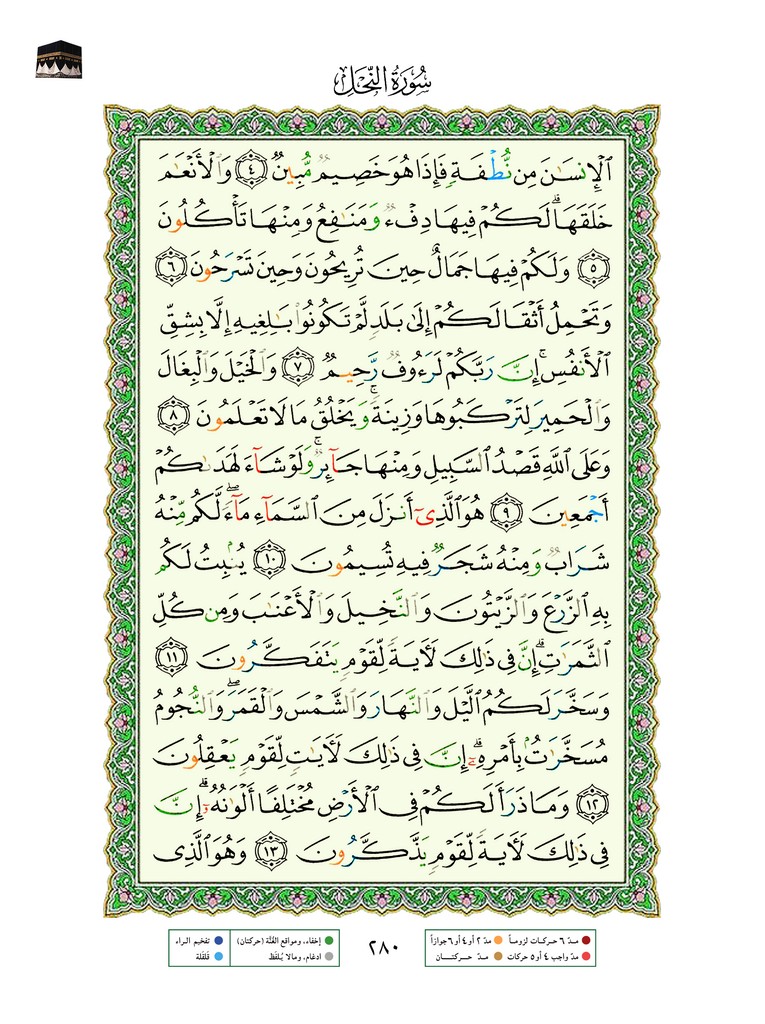 سُورَةُ النَّحْلِ
ٱلْإِنسَٰنَ مِن نُّطْفَةٍ فَإِذَا هُوَ خَصِيمٌ مُّبِينٌ ٤ وَٱلْأَنْعَٰمَ
خَلَقَهَاۗ لَكُمْ فِيهَا دِفْءٌ وَمَنَٰفِعُ وَمِنْهَا تَأْكُلُونَ
٥ وَلَكُمْ فِيهَا جَمَالٌ حِينَ تُرِيحُونَ وَحِينَ تَسْرَحُونَ ٦
وَتَحْمِلُ أَثْقَالَكُمْ إِلَىٰ بَلَدٍ لَّمْ تَكُونُوا۟ بَٰلِغِيهِ إِلَّا بِشِقِّ
ٱلْأَنفُسِۚ إِنَّ رَبَّكُمْ لَرَءُوفٌ رَّحِيمٌ ٧ وَٱلْخَيْلَ وَٱلْبِغَالَ
وَٱلْحَمِيرَ لِتَرْكَبُوهَا وَزِينَةًۚ وَيَخْلُقُ مَا لَا تَعْلَمُونَ ٨
وَعَلَى ٱللَّهِ قَصْدُ ٱلسَّبِيلِ وَمِنْهَا جَآئِرٌۚ وَلَوْ شَآءَ لَهَدَىٰكُمْ
أَجْمَعِينَ ٩ هُوَ ٱلَّذِىٓ أَنزَلَ مِنَ ٱلسَّمَآءِ مَآءًۖ لَّكُم مِّنْهُ
شَرَابٌ وَمِنْهُ شَجَرٌ فِيهِ تُسِيمُونَ ١٠ يُنۢبِتُ لَكُم
بِهِ ٱلزَّرْعَ وَٱلزَّيْتُونَ وَٱلنَّخِيلَ وَٱلْأَعْنَٰبَ وَمِن كُلِّ
ٱلثَّمَرَٰتِۗ إِنَّ فِى ذَٰلِكَ لَءَايَةً لِّقَوْمٍ يَتَفَكَّرُونَ ١١
وَسَخَّرَ لَكُمُ ٱلَّيْلَ وَٱلنَّهَارَ وَٱلشَّمْسَ وَٱلْقَمَرَۖ وَٱلنُّجُومُ
مُسَخَّرَٰتٌۢ بِأَمْرِهِۦٓۗ إِنَّ فِى ذَٰلِكَ لَءَايَٰتٍ لِّقَوْمٍ يَعْقِلُونَ
١٢ وَمَا ذَرَأَ لَكُمْ فِى ٱلْأَرْضِ مُخْتَلِفًا أَلْوَٰنُهُۥٓۗ إِنَّ
فِى ذَٰلِكَ لَءَايَةً لِّقَوْمٍ يَذَّكَّرُونَ ١٣ وَهُوَ ٱلَّذِى
مدّ ٦ حركات لزوماً مدّ ٢ أو ٤ أو ٦ جوازاً
مدّ واجب ٤ أو ٥ حركات مدّ حركتان
٢٨٠
إخفاء، ومواقع الغُنَّة (حركتان) تفخيم الراء
ادغام، ومالا يُلفَظ قلقلة